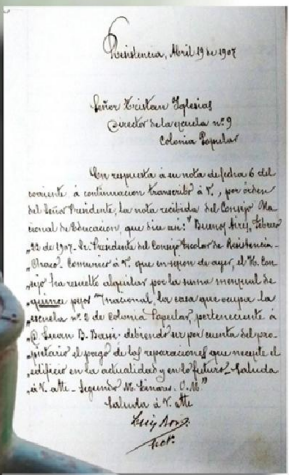 Resistencia, Abril 19 de 1907
Señor Tristan Yglesias
Director de la escuela nº 9
Colonia Popular
En respuesta á su nota de fecha 6 del
corriente á continuacion transcribo á V., por órden
del Señor Presidente, la nota recibida del Consejo Na-
cional de Educacion, que dice asi: "Buenos Aires, Febrero
"22 de 1907. Sr. Presidente del Consejo Escolar de Resistencia -
"Chaco. Comunico á V. que en sesion de ayer, el H. Con-
"sejo ha resuelto alquilar por la suma mensual de
"quince pesos m/nacional, la casa que ocupa la
"escuela nº 8 de Colonia Popular, perteneciente á
"D. Juan B. debiendo ser por cuenta del pro-
"pietario el pago de las reparaciones que necesite el
"edificio en la actualidad y en lo futuro. Saluda
"á V. atte - Segundo M. Linares. O. M."
Saluda á V. atte
Luis
Secr.